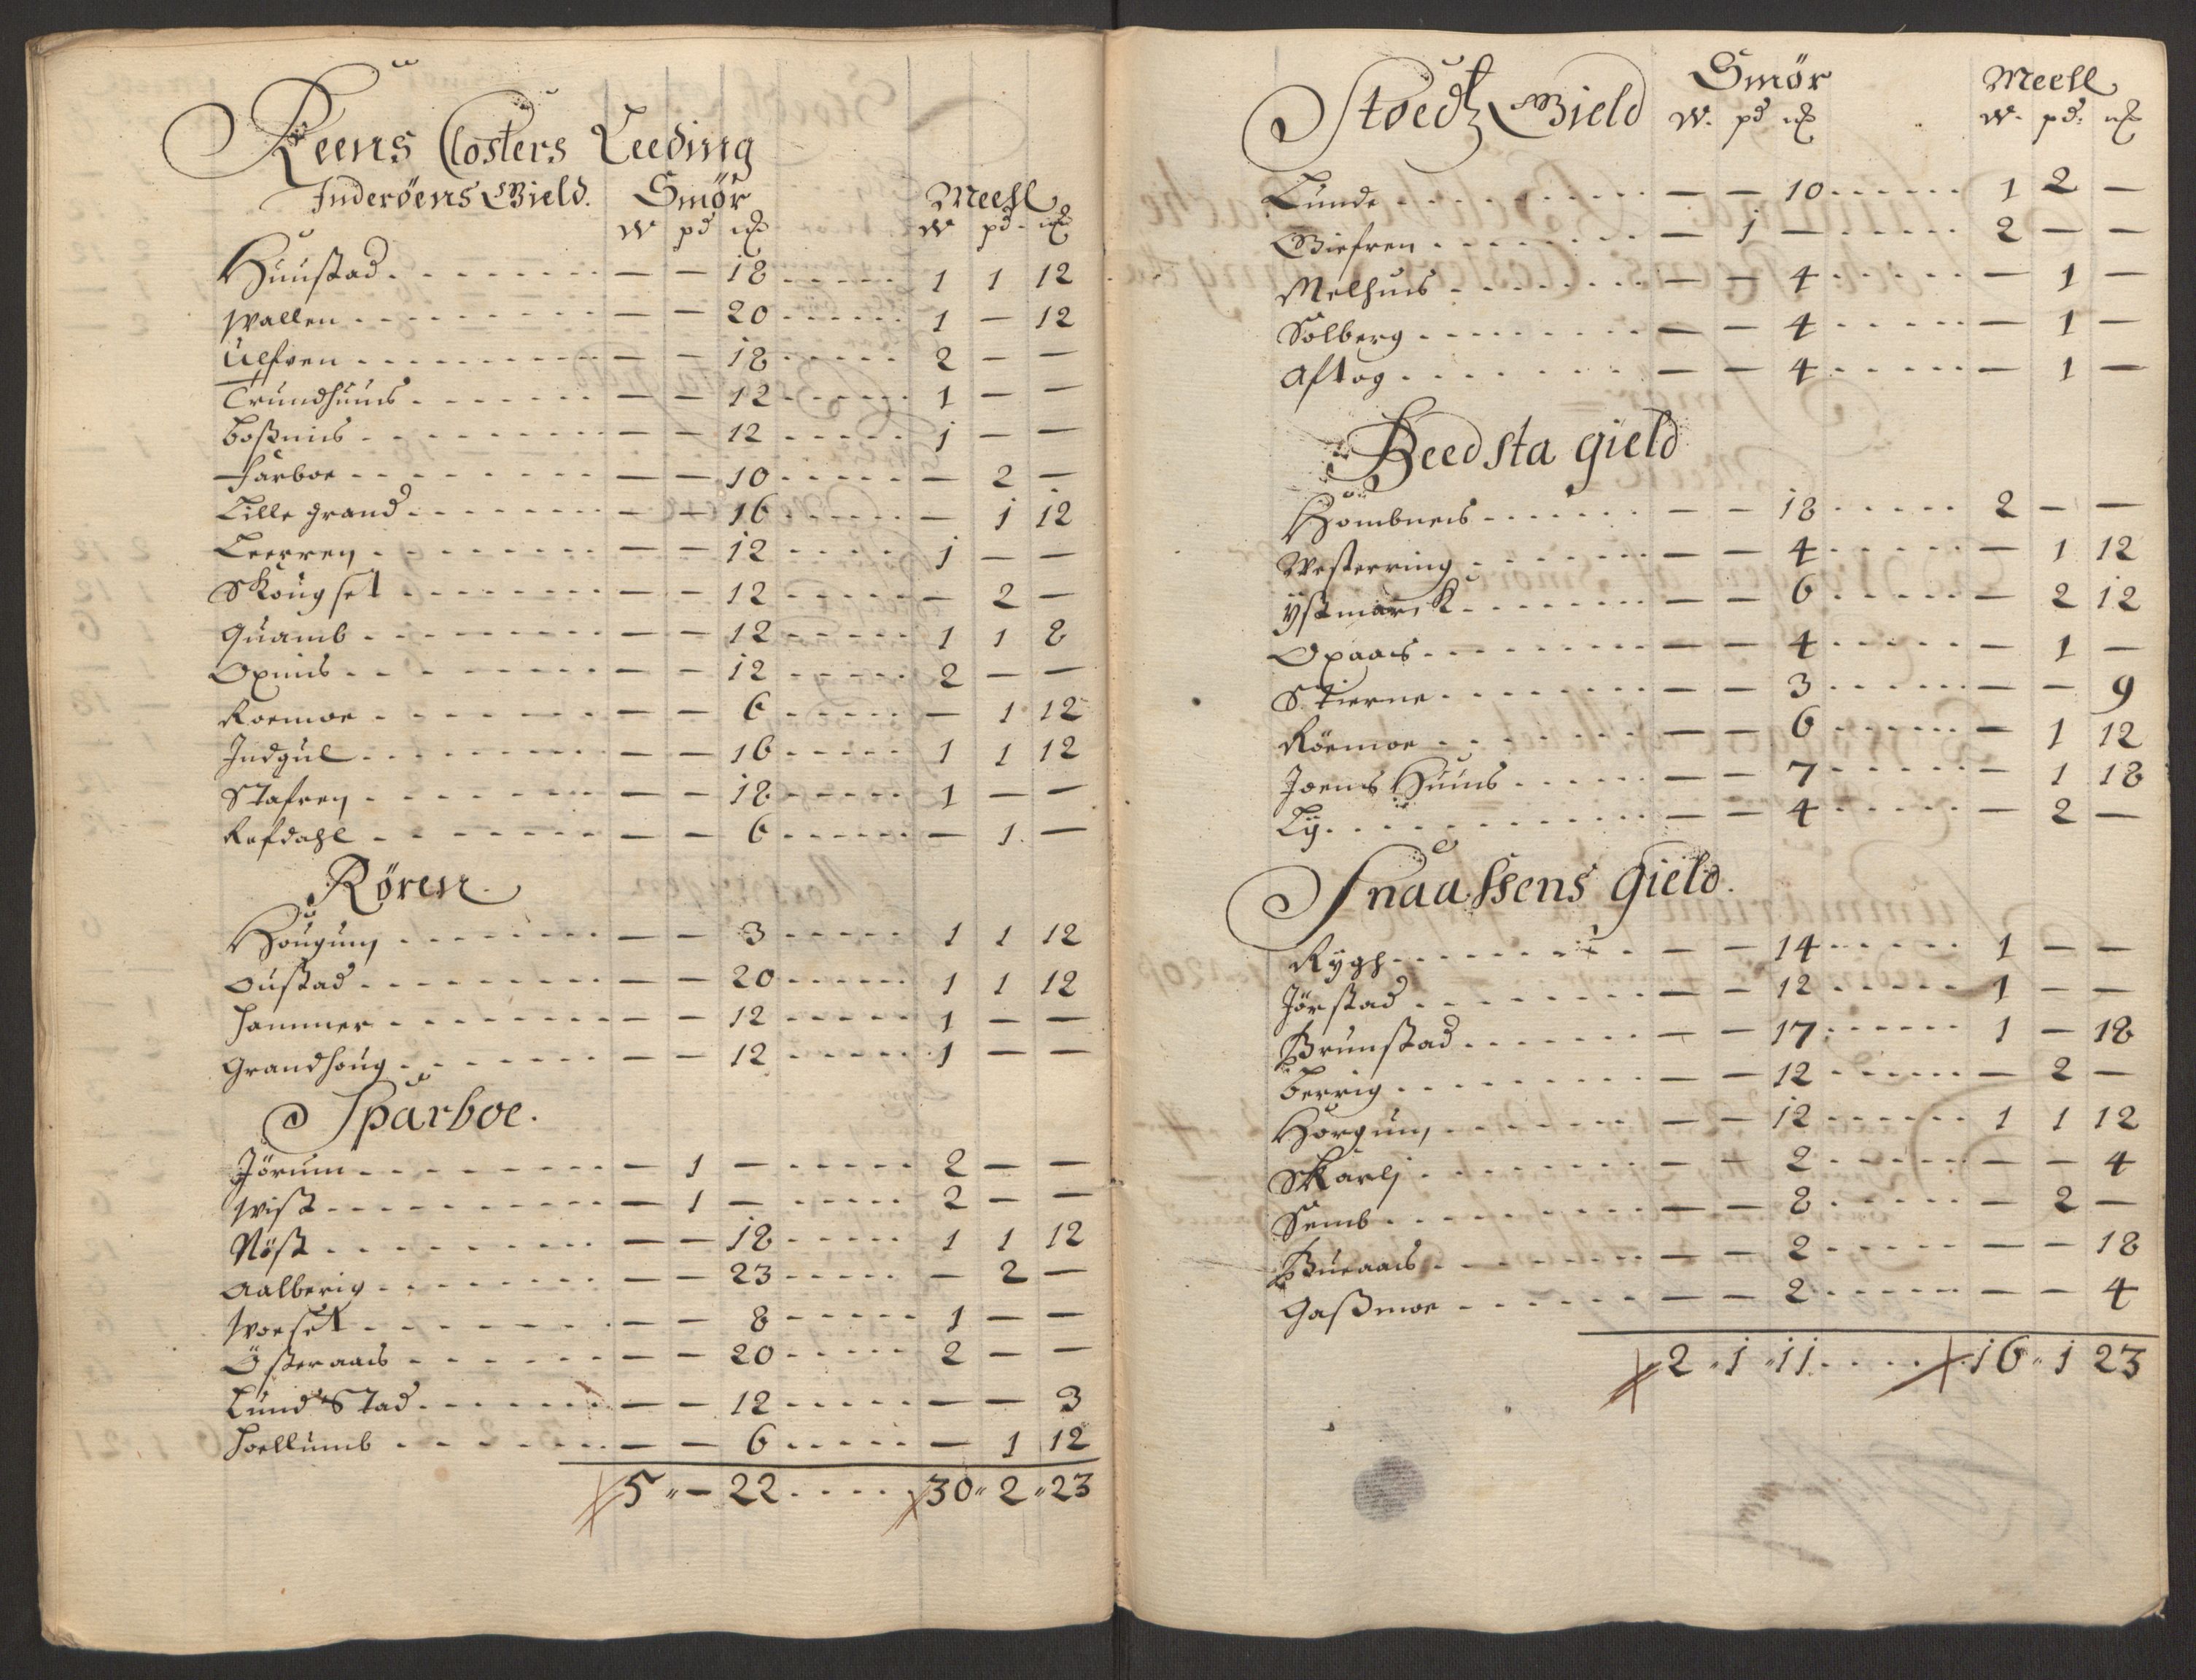 Reens Closters Leeding
Inderöens Gield. Smör Meell
W pd ℔ W pd. ℔
Huustad - - - — — 18 - - - 1 1 12
Wallen - - - — — 20 - - - 1 — 12
Ulfven - - - — — 18 - - - 2 — —
Trundhuus - - - — — 12 - - - 1 — —
Boßnis - - - — — 12 - - - 1 — —
Farboe - - - — — 10 - - - — 2 —
Lille grand - - - — — 16 - - - — 1 12
Leerren - - - — — 12 - - - 1 — —
Skougset - - - — — 12 - - - — 2 —
Quamb - - - — — 12 - - - 1 1 8
Oxnis - - - — — 12 - - - 2 — —
Roemoe - - - — — 6 - - - — 1 12
Indgul - - - — — 16 - - - 1 1 12
Stafren - - - — — 18 - - - 1 — —
Refdahl - - - — — 6 - - - — 1 —
Rören
Hougum - - - — — 3 - - - 1 1 12
Oustad - - - — — 20 - - - 1 1 12
Hammer - - - — — 12 - - - 1 — —
Grandhoug - - - — — 12 - - - 1 — —
Sparboe.
Jörum - - - — 1 — - - - 2 — —
Wist - - - — 1 — - - - 2 — —
Nöst - - - — — 18 - - - 1 1 12
Aalberig - - - — — 23 - - - — 2 —
Woeset - - - — — 8 - - - 1 — —
Österaas - - - — — 20 - - - 2 — —
Lundstad - - - — — 12 - - - — — 3
Hoellumb - - - — — 6 - - - — 1 12
5 " — 22 - - - 30 " 2 " 23
Stoedz Gield Smör Meell
W. pd ℔ W. pd. ℔
Lunde - - - — — 10 - - - 1 2 —
Giefren - - - — 1 — - - - 2 — —
Melhuus - - - — — 4 - - - — 1 —
Solberg - - - — — 4 - - - — 1 —
Aftog - - - — — 4 - - - — 1 —
Beedsta gield
Hombnes - - - — — 18 - - - 2 — —
Westerring - - - — — 4 - - - — 1 12
Ÿstmarck - - - — — 6 - - - — 2 12
Opaas - - - — — 4 - - - — 1 —
Stierne - - - — — 3 - - - — — 9
Röemoe - - - — — 6 - - - — 1 12
Joens Huus - - - — — 7 - - - — 1 18
Lÿ - - - — — 4 - - - — 2 —
Snaassens gield.
Rÿgh - - - — — 14 - - - 1 — —
Jörstad - - - — — 12 - - - 1 — —
Brunstad - - - — — 17 - - - 1 — 18
Berrig - - - — — 12 - - - — 2 —
Horgum - - - — — 12 - - - 1 1 12
Skarlj - - - — — 2 - - - — — 4
Semb - - - — — 8 - - - — 2 —
Bueaas - - - — — 2 - - - — — 18
Gaßmoe - - - — — 2 - - - — — 4
2 " 1 " 11 - - - 16 " 1 23